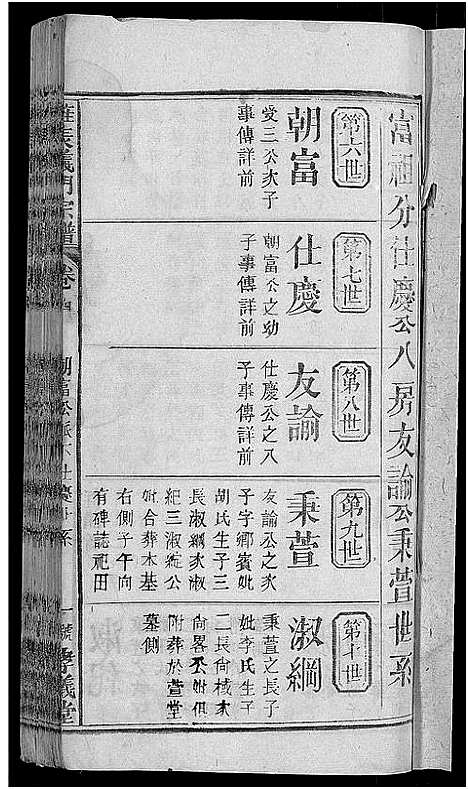 富祖分仕慶公八房友諭公秉萱世系
第六世
朝富
愛三公次子
事傳詳前
第七世
仕慶
朝富公之幼
子事傳詳前
第八世
友諭
仕慶公之八
子事傳詳前
第九世
秉萱
友諭公之次
子字卿賓妣
胡氏生子三
長淑綱次淑
紀三淑綻公
妣合葬木基
右側子午向
有碑誌祀田
第十世
淑綱
秉萱之長子
妣李氏生子
二長尙棫次
尙畧公妣俱
附葬於萱堂
墓側
義門宗譜 卷四
朝富公派 世系
孝義堂